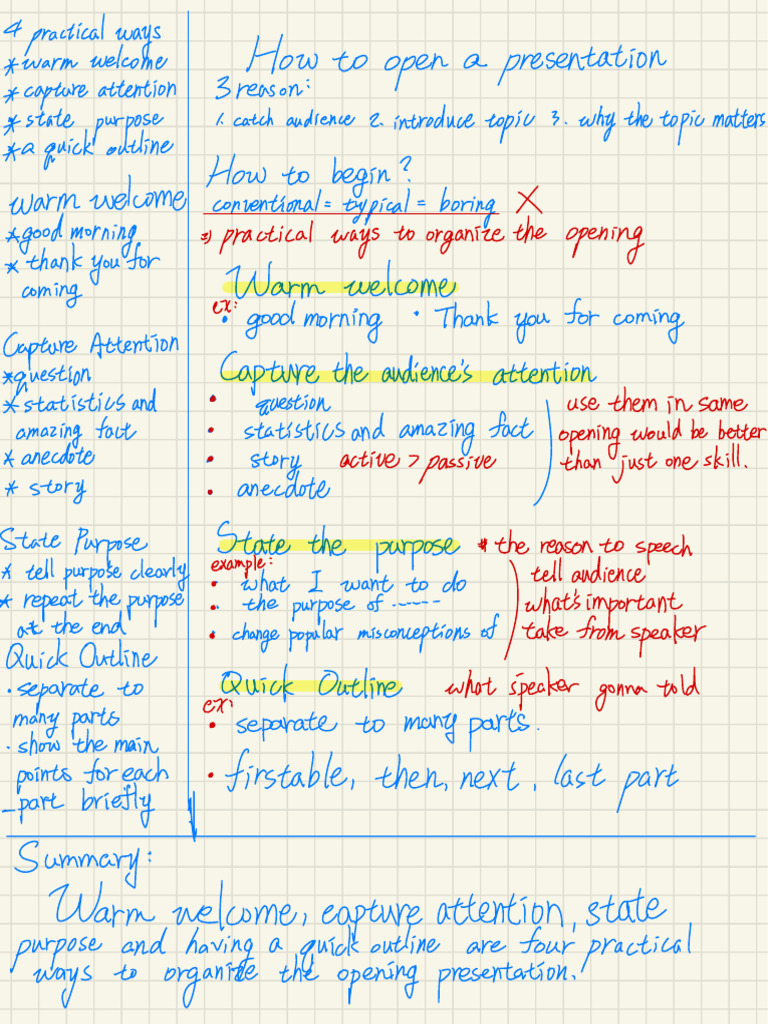 4 practical ways
* warm welcome
* capture attention
* state purpose
* a quick outline
warm welcome
* good morning
* thank you for
coming
Capture Attention
* question
* statistics and
amazing fact
* anecdote
* story
State Purpose
* tell purpose clearly
* repeat the purpose
at the end
Quick Outline
· separate to
many parts
· show the main
points for each
part briefly
How to open a presentation
3 reason:
1. catch audience 2. introduce topic 3. why the topic matters
How to begin?
conventional = typical = boring ×
⇒ practical ways to organize the opening
Warm welcome
ex:
• good morning • Thank you for coming
Capture the audience's attention
• question
• statistics and amazing fact
• story active > passive
• anecdote
use them in same
opening would be better
than just one skill.
State the purpose * the reason to speech
example:
• what I want to do
• the purpose of ------
• change popular misconceptions of
tell audience
what's important
take from speaker
Quick Outline what speaker gonna told
ex:
• separate to many parts.
• firstable, then, next, last part
Summary:
Warm welcome, capture attention, state
purpose and having a quick outline are four practical
ways to organize the opening presentation.